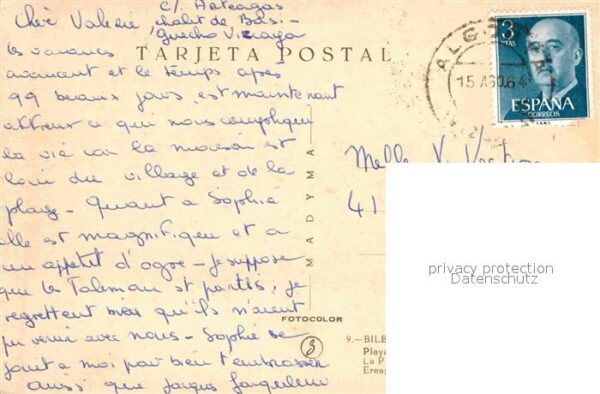 c/. Arteagas
Chère Valerie chalet de Basi-
Guecho Vizcaya
les vacances
TARJETA POSTAL
avancent et le temps après
qq beaux jours, est maintenant
affreux ce qui nous complique
la vie car la maison est
loin du village et de la
plage - Quant à Sophie
elle est magnifique et a
un appétit d'ogre - Je suppose
que les st partis, je
regrettent bien qu'ils n'aient
pu venir avec nous - Sophie se
joint à moi pour bien t'embrasser
ainsi que Jacques
Melle V.
41
MADYMA
FOTOCOLOR
3
9.-BILB
Playa
La P
Erea
ALGORTA
15 AGO.64
3
PTAS
ESPAÑA
CORREOS
privacy protection
Datenschutz